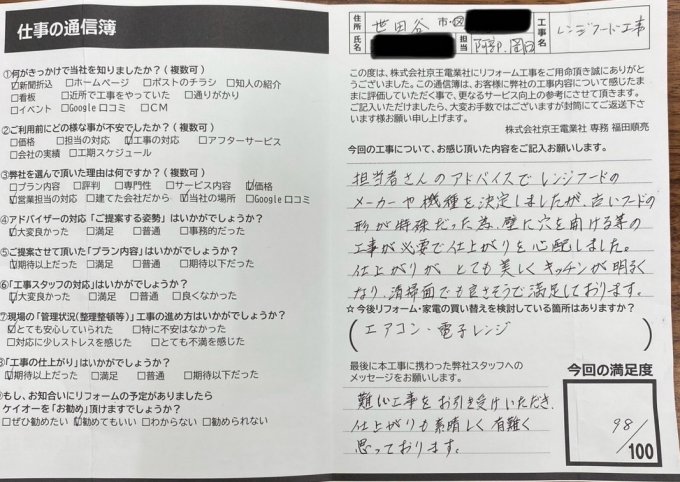 仕事の通信簿
①何がきっかけで当社を知りましたか？(複数可)
☑新聞折込 □ホームページ □ポストのチラシ □知人の紹介
□看板 □近所で工事をやっていた □通りがかり
□イベント □Google口コミ □CM
②ご利用前にどの様な事が不安でしたか？(複数可)
□価格 □担当の対応 ☑工事の対応 □アフターサービス
□会社の実績 □工期スケジュール
③弊社を選んで頂いた理由は何ですか？(複数可)
□プラン内容 □評判 □専門性 □サービス内容 ☑価格
☑営業担当の対応 □建てた会社だから ☑当社の場所 □Google口コミ
④アドバイザーの対応「ご提案する姿勢」はいかがでしょうか？
☑大変良かった □満足 □普通 □事務的だった
⑤ご提案させて頂いた「プラン内容」はいかがでしょうか？
☑期待以上だった □満足 □普通 □期待以下だった
⑥「工事スタッフの対応」はいかがでしょうか？
☑大変良かった □満足 □普通 □良くなかった
⑦現場の「管理状況(整理整頓等)」工事の進め方はいかがでしょうか？
☑とても安心していられた □特に不安はなかった
□対応に少しストレスを感じた □とても不満を感じた
「工事の仕上がり」はいかがでしょうか？
☑期待以上だった □満足 □普通 □期待以下だった
もし、お知合いにリフォームの予定がありましたら
ケイオーを「お勧め」頂けますでしょうか？
□ぜひ勧めたい ☑勧めてもいい □わからない □勧められない
住所 世田谷 市・区
氏名 担当 阿部、岡田
工事名 レンジフード工事
この度は、株式会社京王電業社にリフォーム工事をご用命頂き誠にありがと
うございました。この通信簿は、お客様に弊社の工事内容について感じたま
まに評価していただく事で、更なるサービス向上の参考にさせて頂きます。
ご記入いただけましたら、大変お手数ではございますが封筒にてご返送下さ
います様お願い申し上げます。
株式会社京王電業社 専務 福田順亮
今回の工事について、お感じ頂いた内容をご記入お願いします。
担当者さんのアドバイスでレンジフードの
メーカーや機種を決定しましたが、古いフードの
形が特殊だった為、壁に穴を開ける等の
工事が必要で仕上がりを心配しました。
仕上がりが とても美しくキッチンが明るく
なり、清掃面でも良さそうで満足しております。
☆今後リフォーム・家電の買い替えを検討している箇所はありますか？
(エアコン・電子レンジ)
最後に本工事に携わった弊社スタッフへの
メッセージをお願いします。
難しい工事をお引き受けいただき
仕上がりも素晴しく有難く
思っております。
今回の満足度
98/100